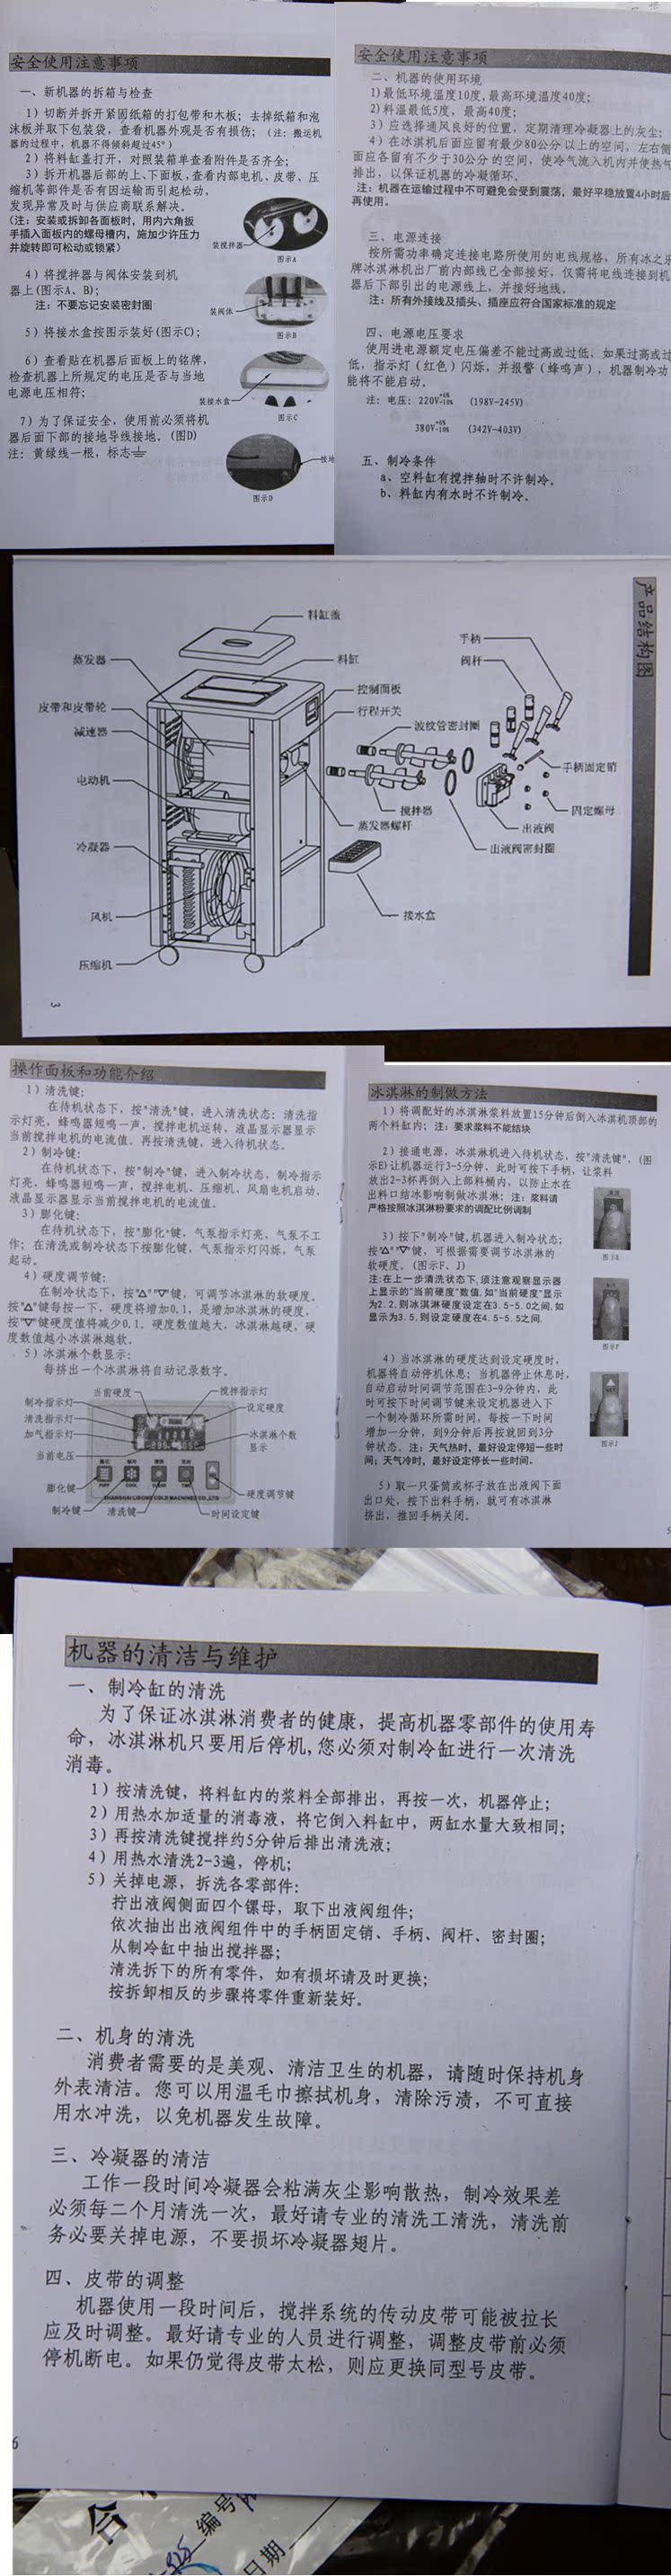 安全使用注意事项
一、新机器的拆箱与检查
1）切断并拆开紧固纸箱的打包带和木板；去掉纸箱和泡
沫板并取下包装袋，查看机器外观是否有损伤；（注：搬运机
器的过程中，机器不得倾斜超过45°）
2）将料缸盖打开，对照装箱单查看附件是否齐全；
3）拆开机器后部的上、下面板，查看内部电机、皮带、压
缩机等部件是否有因运输而引起松动，
发现异常及时与供应商联系解决。
（注：安装或拆卸各面板时，用内六角扳
手插入面板内的螺母槽内，施加少许压力
并旋转即可松动或锁紧）
装搅拌器
图示A
4）将搅拌器与阀体安装到机
器上（图示A、B）；
注：不要忘记安装密封圈
装阀体
图示B
5）将接水盒按图示装好（图示C）；
6）查看贴在机器后面板上的铭牌，
检查机器上所规定的电压是否与当地
电源电压相符；
装接水盒
图示C
7）为了保证安全，使用前必须将机
器后面下部的接地导线接地。（图D）
注：黄绿线一根，标志
接地
图示D
安全使用注意事项
二、机器的使用环境
1）最低环境温度10度，最高环境温度40度；
2）料温最低5度，最高40度；
3）应选择通风良好的位置，定期清理冷凝器上的灰尘；
4）在冰淇机后面应留有最少80公分以上的空间，左右侧
面应各留有不少于30公分的空间，使冷气流入机内并使热气
排出，以保证机器的冷凝循环。
注：机器在运输过程中不可避免会受到震荡，最好平稳放置4小时后
再使用。
三、电源连接
按所需功率确定连接电路所使用的电线规格，所有冰之乐
牌冰淇淋机出厂前内部线已全部接好，仅需将电线连接到机
器后下部引出的电源线上，并接好地线。
注：所有外接线及插头、插座应符合国家标准的规定
四、电源电压要求
使用进电源额定电压偏差不能过高或过低，如果过高或过
低，指示灯（红色）闪烁，并报警（蜂鸣声），机器制冷功
能将不能启动。
注：电压：220V+6%-10% （198V-245V）
380V+6%-10% （342V-403V）
五、制冷条件
a、空料缸有搅拌轴时不许制冷。
b、料缸内有水时不许制冷。
产品结构图
料缸盖
蒸发器
料缸
手柄
阀杆
控制面板
皮带和皮带轮
行程开关
减速器
波纹管密封圈
电动机
手柄固定销
搅拌器
固定螺母
蒸发器螺杆
出液阀
冷凝器
出液阀密封圈
风机
接水盒
压缩机
3
操作面板和功能介绍
1）清洗键：
在待机状态下，按"清洗"键，进入清洗状态：清洗指
示灯亮，蜂鸣器短鸣一声，搅拌电机运转，液晶显示器显示
当前搅拌电机的电流值。再按清洗键，进入待机状态。
2）制冷键：
在待机状态下，按"制冷"键，进入制冷状态，制冷指示
灯亮，蜂鸣器短鸣一声，搅拌电机、压缩机、风扇电机启动，
液晶显示器显示当前搅拌电机的电流值。
3）膨化键：
在待机状态下，按"膨化"键，气泵指示灯亮，气泵不工
作；在清洗或制冷状态下按膨化键，气泵指示灯闪烁，气泵
起动。
4）硬度调节键：
在制冷状态下，按"△""▽"键，可调节冰淇淋的软硬度。
按"△"键每按一下，硬度将增加0.1，是增加冰淇淋的硬度，
按"▽"键硬度值将减少0.1。硬度数值越大，冰淇淋越硬，硬
度数值越小冰淇淋越软。
5）冰淇淋个数显示：
每挤出一个冰淇淋将自动记录数字。
当前硬度
搅拌指示灯
制冷指示灯
设定硬度
清洗指示灯
加气指示灯
冰淇淋个数
显示
当前电压
膨化键
PUFF COOL CLEAN TIME
硬度调节键
制冷键
清洗键
时间设定键
冰淇淋的制做方法
1）将调配好的冰淇淋浆料放置15分钟后倒入冰淇机顶部的
两个料缸内；注：要求浆料不能结块
2）接通电源，冰淇淋机进入待机状态，按"清洗键"，（图
示E）让机器运行3-5分钟，此时可按下手柄，让浆料
放出2-3杯再倒入上部料桶内，以防止水在
出料口结冰影响制做冰淇淋；注：浆料请
严格按照冰淇淋粉要求的调配比例调制
图示E
3）按下"制冷"键，机器进入制冷状态；
按"△""▽"键，可根据需要调节冰淇淋的
软硬度。（图示F、J）
注：在上一步清洗状态下，须注意观察显示器
上显示的"当前硬度"数值，如"当前硬度"显示
为2.2，则冰淇淋硬度设定在3.5-5.0之间，如
显示为3.5，则设定硬度在4.5-5.5之间.
图示F
4）当冰淇淋的硬度达到设定硬度时，
机器将自动停机休息；当机器停止休息时，
自动启动时间调节范围在3-9分钟内，此
时可按下时间调节键来设定机器进入下
一个制冷循环所需时间，每按一下时间
增加一分钟，到9分钟后再按就回到3分
钟状态。注：天气热时，最好设定停短一些时
间；天气冷时，最好设定停长一些时间。
图示J
5）取一只蛋筒或杯子放在出液阀下面
出口处，按下出料手柄，就可有冰淇淋
挤出，推回手柄关闭。
5
机器的清洁与维护
一、制冷缸的清洗
为了保证冰淇淋消费者的健康，提高机器零部件的使用寿
命，冰淇淋机只要用后停机，您必须对制冷缸进行一次清洗
消毒。
1）按清洗键，将料缸内的浆料全部排出，再按一次，机器停止；
2）用热水加适量的消毒液，将它倒入料缸中，两缸水量大致相同；
3）再按清洗键搅拌约5分钟后排出清洗液；
4）用热水清洗2-3遍，停机；
5）关掉电源，拆洗各零部件：
拧出液阀侧面四个镙母，取下出液阀组件；
依次抽出出液阀组件中的手柄固定销、手柄、阀杆、密封圈；
从制冷缸中抽出搅拌器；
清洗拆下的所有零件，如有损坏请及时更换；
按拆卸相反的步骤将零件重新装好。
二、机身的清洗
消费者需要的是美观、清洁卫生的机器，请随时保持机身
外表清洁。您可以用温毛巾擦拭机身，清除污渍，不可直接
用水冲洗，以免机器发生故障。
三、冷凝器的清洁
工作一段时间冷凝器会粘满灰尘影响散热，制冷效果差
必须每二个月清洗一次，最好请专业的清洗工清洗，清洗前
务必要关掉电源，不要损坏冷凝器翅片。
四、皮带的调整
机器使用一段时间后，搅拌系统的传动皮带可能被拉长
应及时调整。最好请专业的人员进行调整，调整皮带前必须
停机断电。如果仍觉得皮带太松，则应更换同型号皮带。
6
合
编号
日期